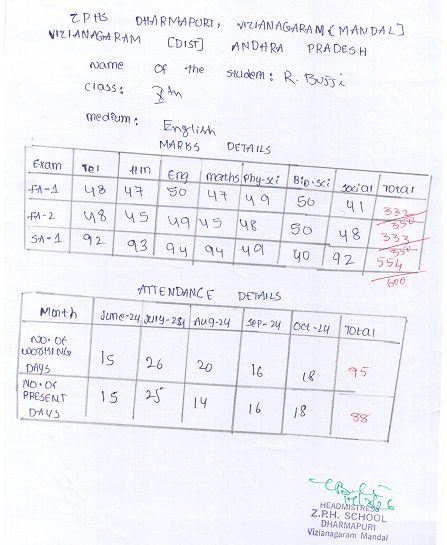 ZPHS DHARMAPURI, VIZIANAGARAM [MANDAL]
VIZIANAGARAM [DIST] ANDHRA PRADESH
Name of the student: R. Bujji
class: Xth
medium: English
MARKS DETAILS
Exam Tel HIN Eng maths Phy-sci Bio-sci social Total
FA-1 48 47 50 47 49 50 41 333/350
FA-2 48 45 49 45 48 50 48 333/350
SA-1 92 93 94 94 49 40 92 554/600
ATTENDANCE DETAILS
Month June-24 July-24 Aug-24 Sep-24 Oct-24 Total
NO. OF WORKING DAYS 15 26 20 16 18 95
NO. OF PRESENT DAYS 15 25 14 16 18 88
HEADMISTRESS
Z.P.H. SCHOOL
DHARMAPURI
Vizianagaram Mandal